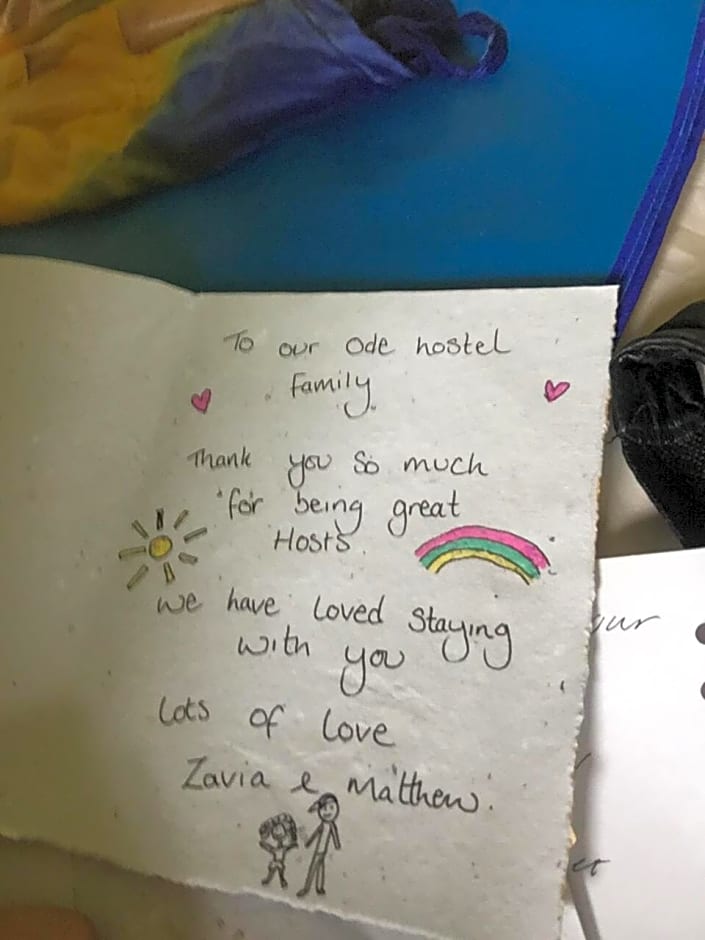 To our Ode hostel
Family.
Thank you so much
for being great
Hosts.
We have loved staying
with you
Lots of love
Zavia & Matthew.